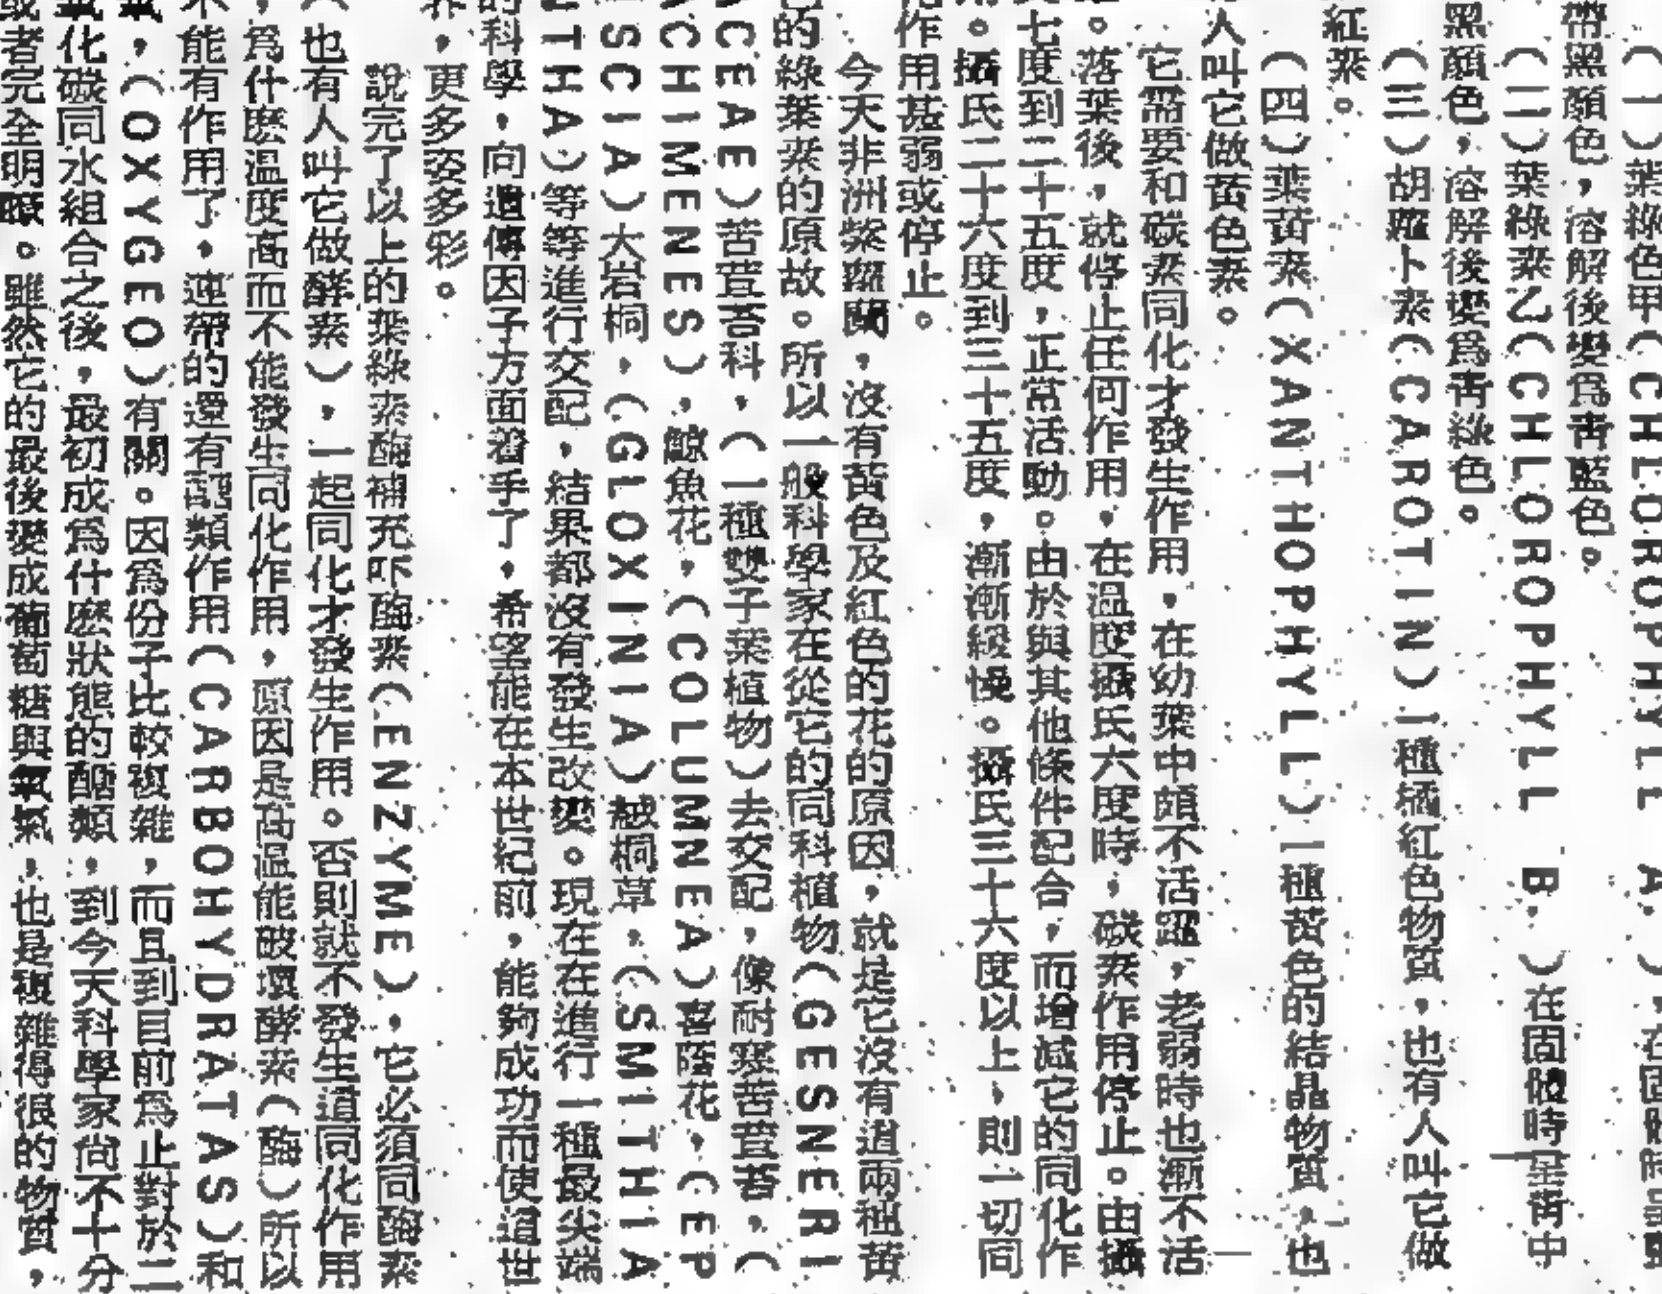 （一）葉綠色甲（CHLOROPHYLL A.），在固體時呈野
帶黑顏色，溶解後變爲青藍色。
（二）葉綠素乙（CHLOROPHYLL B.）在固體時呈青中
黑顏色，溶解後變爲青綠色。
（三）胡蘿卜素（CAROTIN）一種橘紅色物質，也有人叫它做
紅素。
（四）葉黃素（XANTHOPHYLL）一種黃色的結晶物質，也
人叫它做黃色素。
它需要和碳素同化才發生作用，在幼葉中頗不活躍，老弱時也漸不活
。落葉後，就停止任何作用，在溫度攝氏六度時，碳素作用停止。由攝
七度到二十五度，正常活動。由於與其他條件配合，而增減它的同化作
。攝氏二十六度到三十五度，漸漸緩慢。攝氏三十六度以上，則一切同
化作用甚弱或停止。
今天非洲紫羅蘭，沒有黃色及紅色的花的原因，就是它沒有這兩種黃
色的綠葉素的原故。所以一般科學家在從它的同科植物（GESNERI
ACEAE）苦苣苔科，（一種雙子葉植物）去交配，像耐寒苦苣苔，（
ACHIMENES），鯨魚花，（COLUMNEA）喜蔭花，（EP
ISCIA）大岩桐，（GLOXINIA）越桐草，（SMITHIA
NTHA）等等進行交配，結果都沒有發生改變。現在在進行一種最尖端
的科學，向遺傳因子方面着手了，希望能在本世紀前，能夠成功而使這世
界，更多姿多彩。
說完了以上的葉綠素酶補充吓酶素（ENZYME），它必須同酶素
（也有人叫它做酵素），一起同化才發生作用。否則就不發生這同化作用
，爲什麽溫度高而不能發生同化作用，原因是高溫能破壞酵素（酶）所以
不能有作用了，連帶的還有醣類作用（CARBOHYDRATAS）和
氧，（OXYGEO）有關。因爲份子比較複雜，而且到目前爲止對於二
氧化碳同水組合之後，最初成爲什麽狀態的醣類，到今天科學家尙不十分
或者完全明瞭。雖然它的最後變成葡萄糖與氧氣，也是複雜得很的物質，